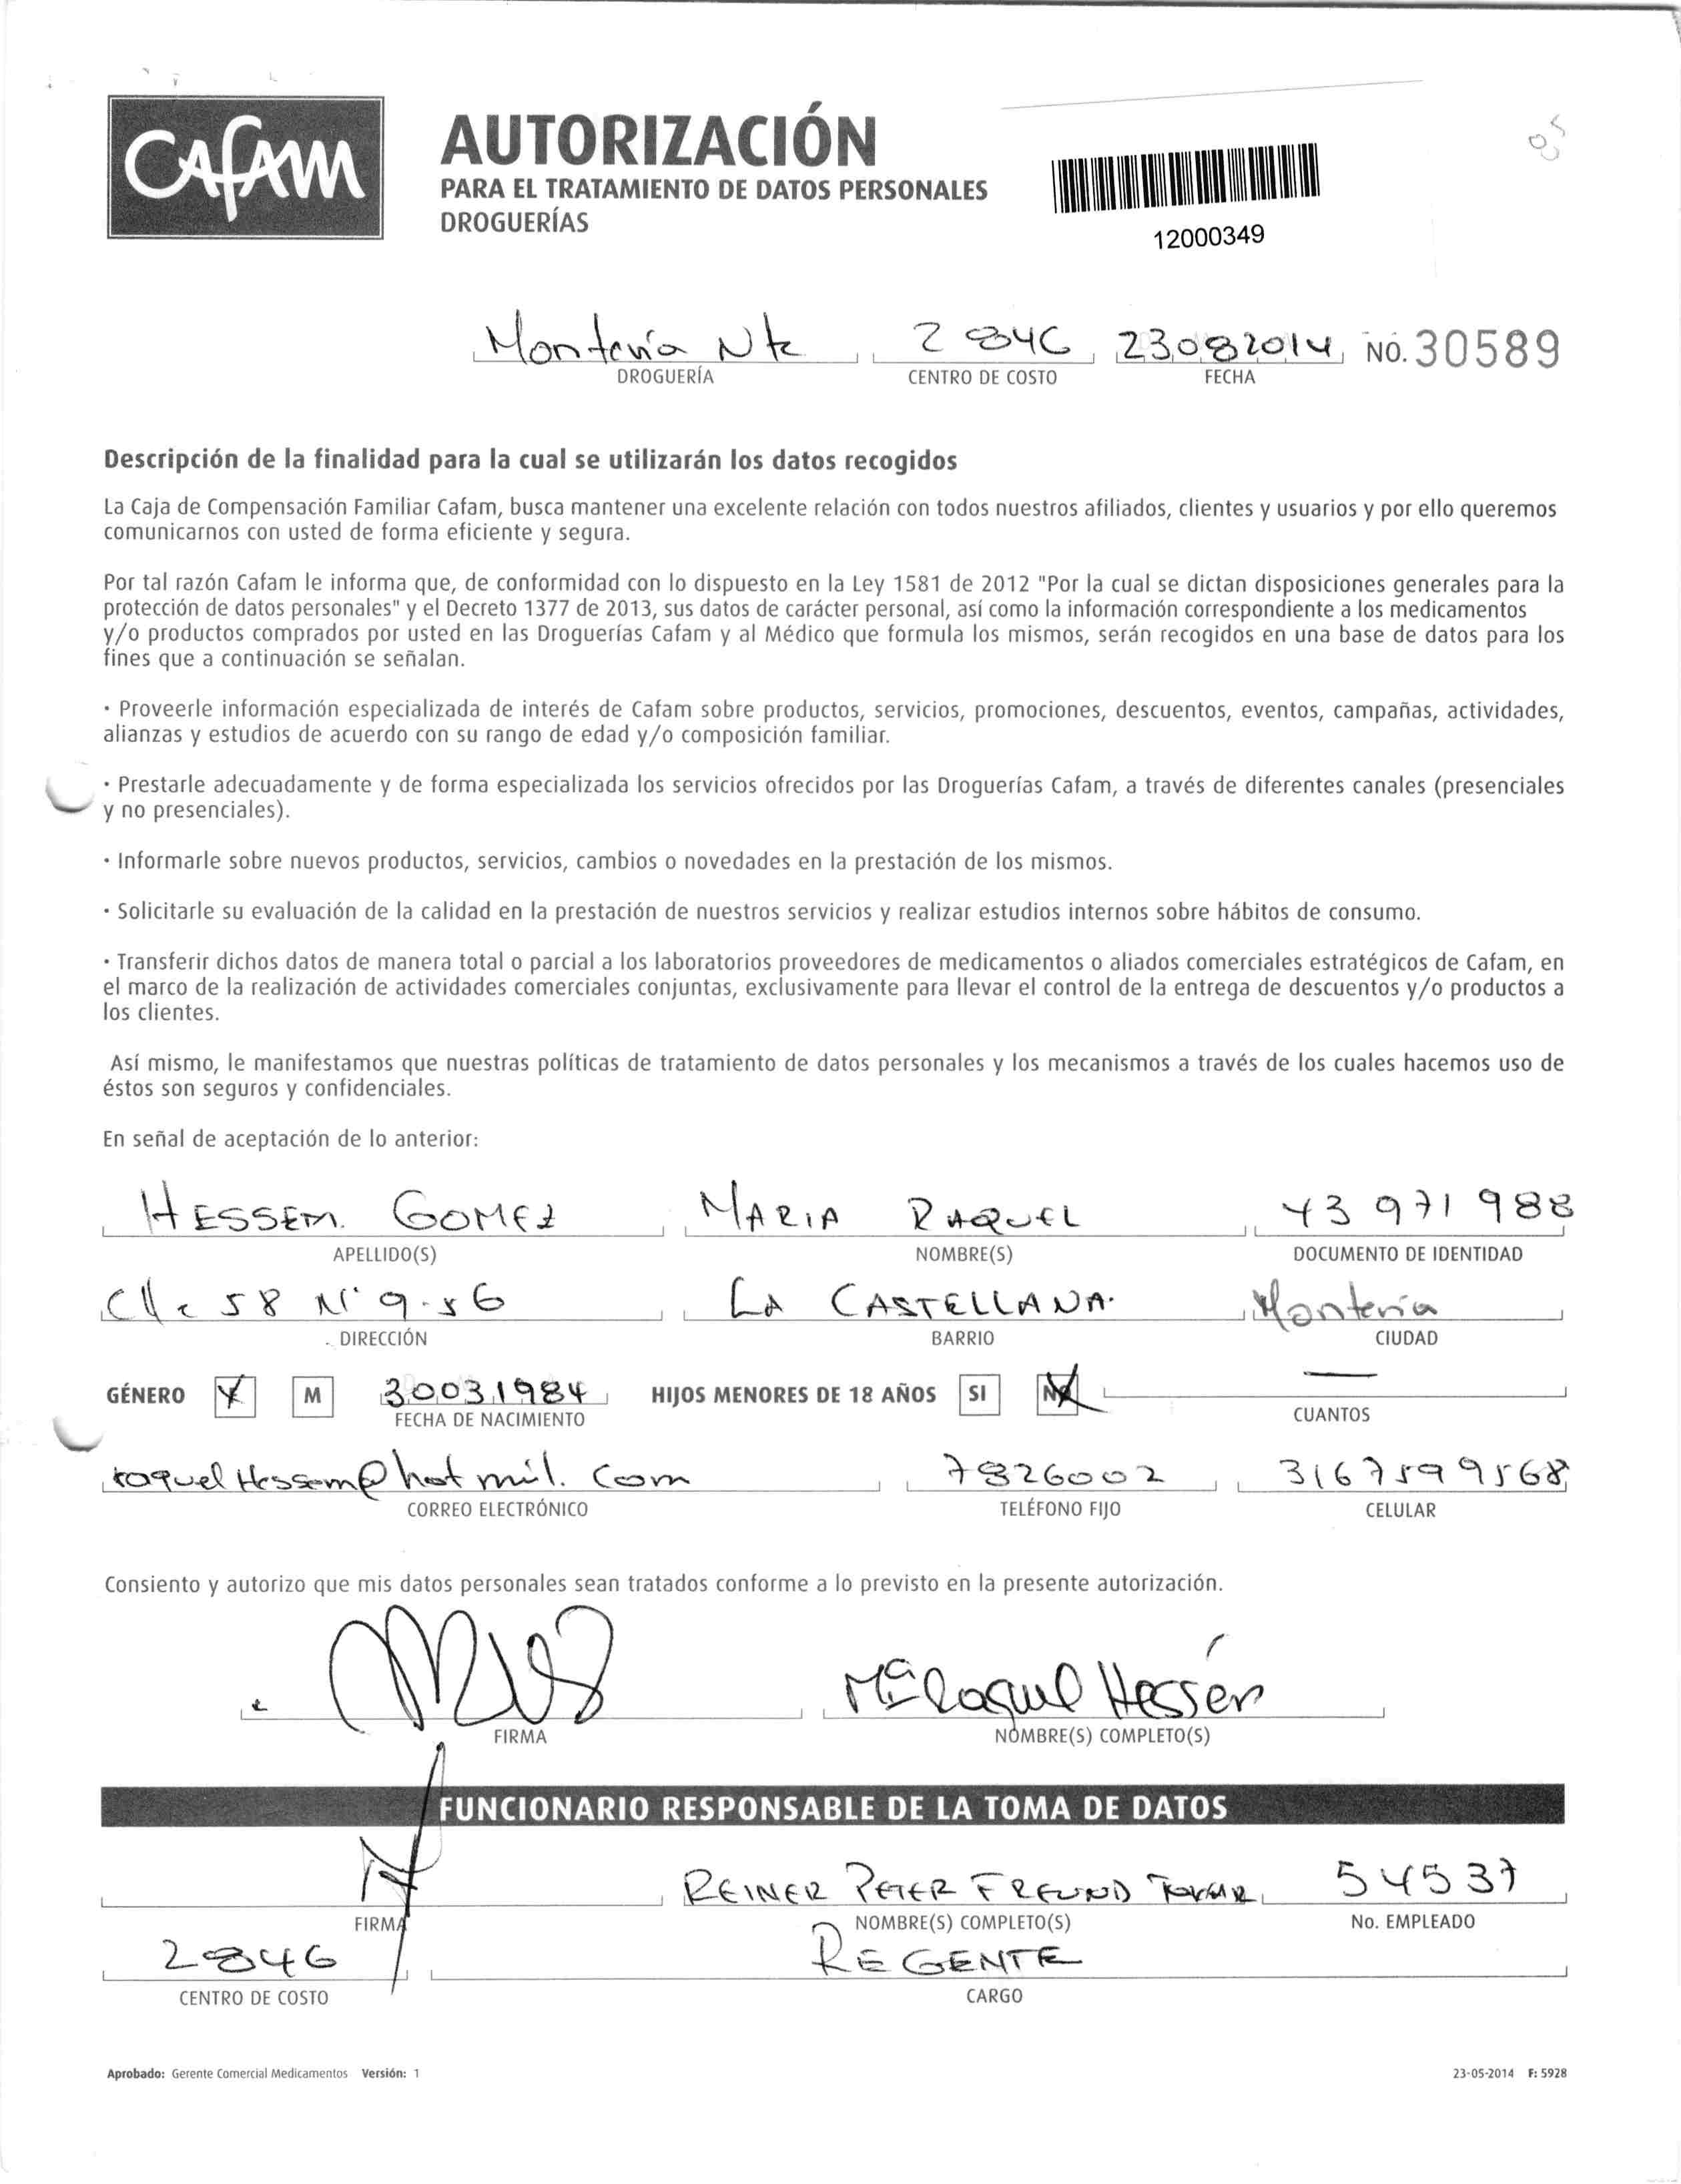 Cafam
AUTORIZACIÓN
PARA EL TRATAMIENTO DE DATOS PERSONALES
DROGUERÍAS
12000349
Montería Nte 2846 23082014 NO. 30589
DROGUERÍA CENTRO DE COSTO FECHA
Descripción de la finalidad para la cual se utilizarán los datos recogidos
La Caja de Compensación Familiar Cafam, busca mantener una excelente relación con todos nuestros afiliados, clientes y usuarios y por ello queremos
comunicarnos con usted de forma eficiente y segura.
Por tal razón Cafam le informa que, de conformidad con lo dispuesto en la Ley 1581 de 2012 "Por la cual se dictan disposiciones generales para la
protección de datos personales" y el Decreto 1377 de 2013, sus datos de carácter personal, así como la información correspondiente a los medicamentos
y/o productos comprados por usted en las Droguerías Cafam y al Médico que formula los mismos, serán recogidos en una base de datos para los
fines que a continuación se señalan.
· Proveerle información especializada de interés de Cafam sobre productos, servicios, promociones, descuentos, eventos, campañas, actividades,
alianzas y estudios de acuerdo con su rango de edad y/o composición familiar.
· Prestarle adecuadamente y de forma especializada los servicios ofrecidos por las Droguerías Cafam, a través de diferentes canales (presenciales
y no presenciales).
· Informarle sobre nuevos productos, servicios, cambios o novedades en la prestación de los mismos.
· Solicitarle su evaluación de la calidad en la prestación de nuestros servicios y realizar estudios internos sobre hábitos de consumo.
· Transferir dichos datos de manera total o parcial a los laboratorios proveedores de medicamentos o aliados comerciales estratégicos de Cafam, en
el marco de la realización de actividades comerciales conjuntas, exclusivamente para llevar el control de la entrega de descuentos y/o productos a
los clientes.
Así mismo, le manifestamos que nuestras políticas de tratamiento de datos personales y los mecanismos a través de los cuales hacemos uso de
éstos son seguros y confidenciales.
En señal de aceptación de lo anterior:
HESSEM. GOMEZ MARIA RAQUEL 43 971 988
APELLIDO(S) NOMBRE(S) DOCUMENTO DE IDENTIDAD
Clle 58 N° 9-56 LA CASTELLANA. Montería
DIRECCIÓN BARRIO CIUDAD
GÉNERO M 30031984 HIJOS MENORES DE 18 AÑOS SI NO —
FECHA DE NACIMIENTO CUANTOS
raquelHessem@hotmil.com 7826002 3167599568
CORREO ELECTRÓNICO TELÉFONO FIJO CELULAR
Consiento y autorizo que mis datos personales sean tratados conforme a lo previsto en la presente autorización.
Mª Raquel Hessen
FIRMA NOMBRE(S) COMPLETO(S)
FUNCIONARIO RESPONSABLE DE LA TOMA DE DATOS
REINER PETER FREUND TOVAR 54537
FIRMA NOMBRE(S) COMPLETO(S) No. EMPLEADO
2846 REGENTE
CENTRO DE COSTO CARGO
Aprobado: Gerente Comercial Medicamentos Versión: 1 23-05-2014 F: 5928